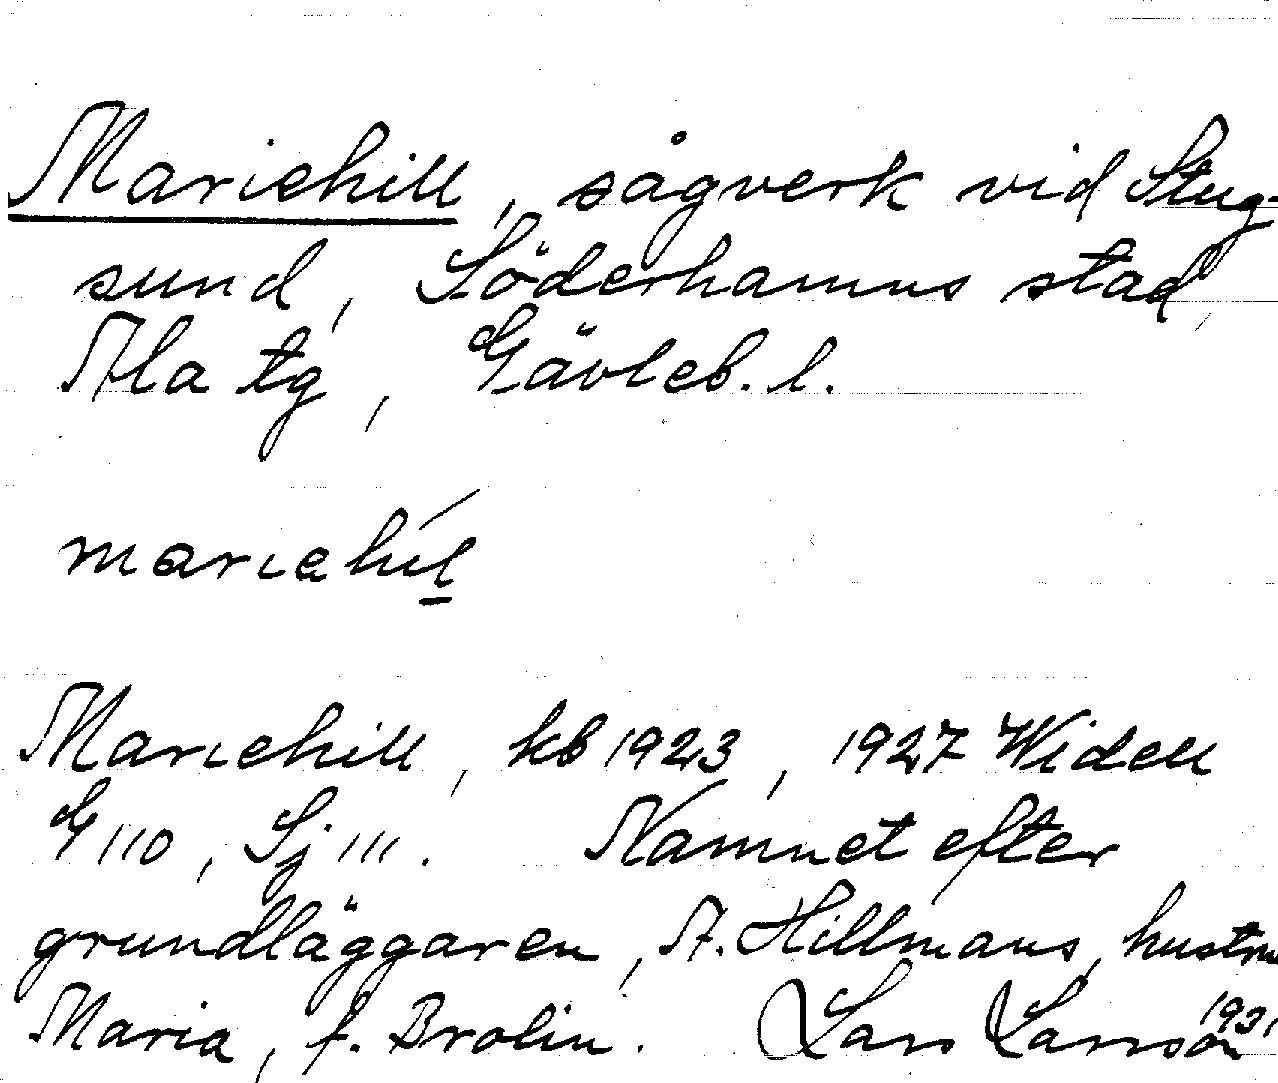 Mariehill, sågverk vid Stug-
sund, Söderhamns stad,
Ala tg, Gävleb. l.
mariehíl
Mariehill, kb 1923, 1927 Widell
G 110, Sj 111. Namnet efter
grundläggaren, A. Hillmans, hustru
Maria, f. Brolin. Lars Larsson 1931